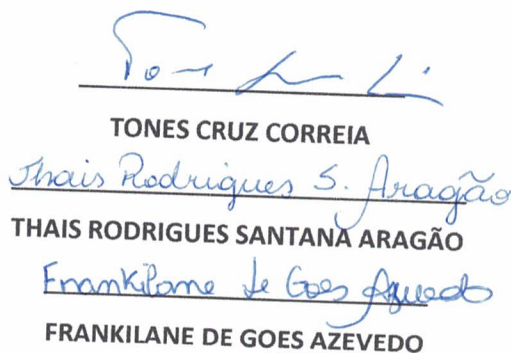 TONES CRUZ CORREIA
Thais Rodrigues S. Aragão
THAIS RODRIGUES SANTANA ARAGÃO
Frankilane de Goes Azevedo
FRANKILANE DE GOES AZEVEDO